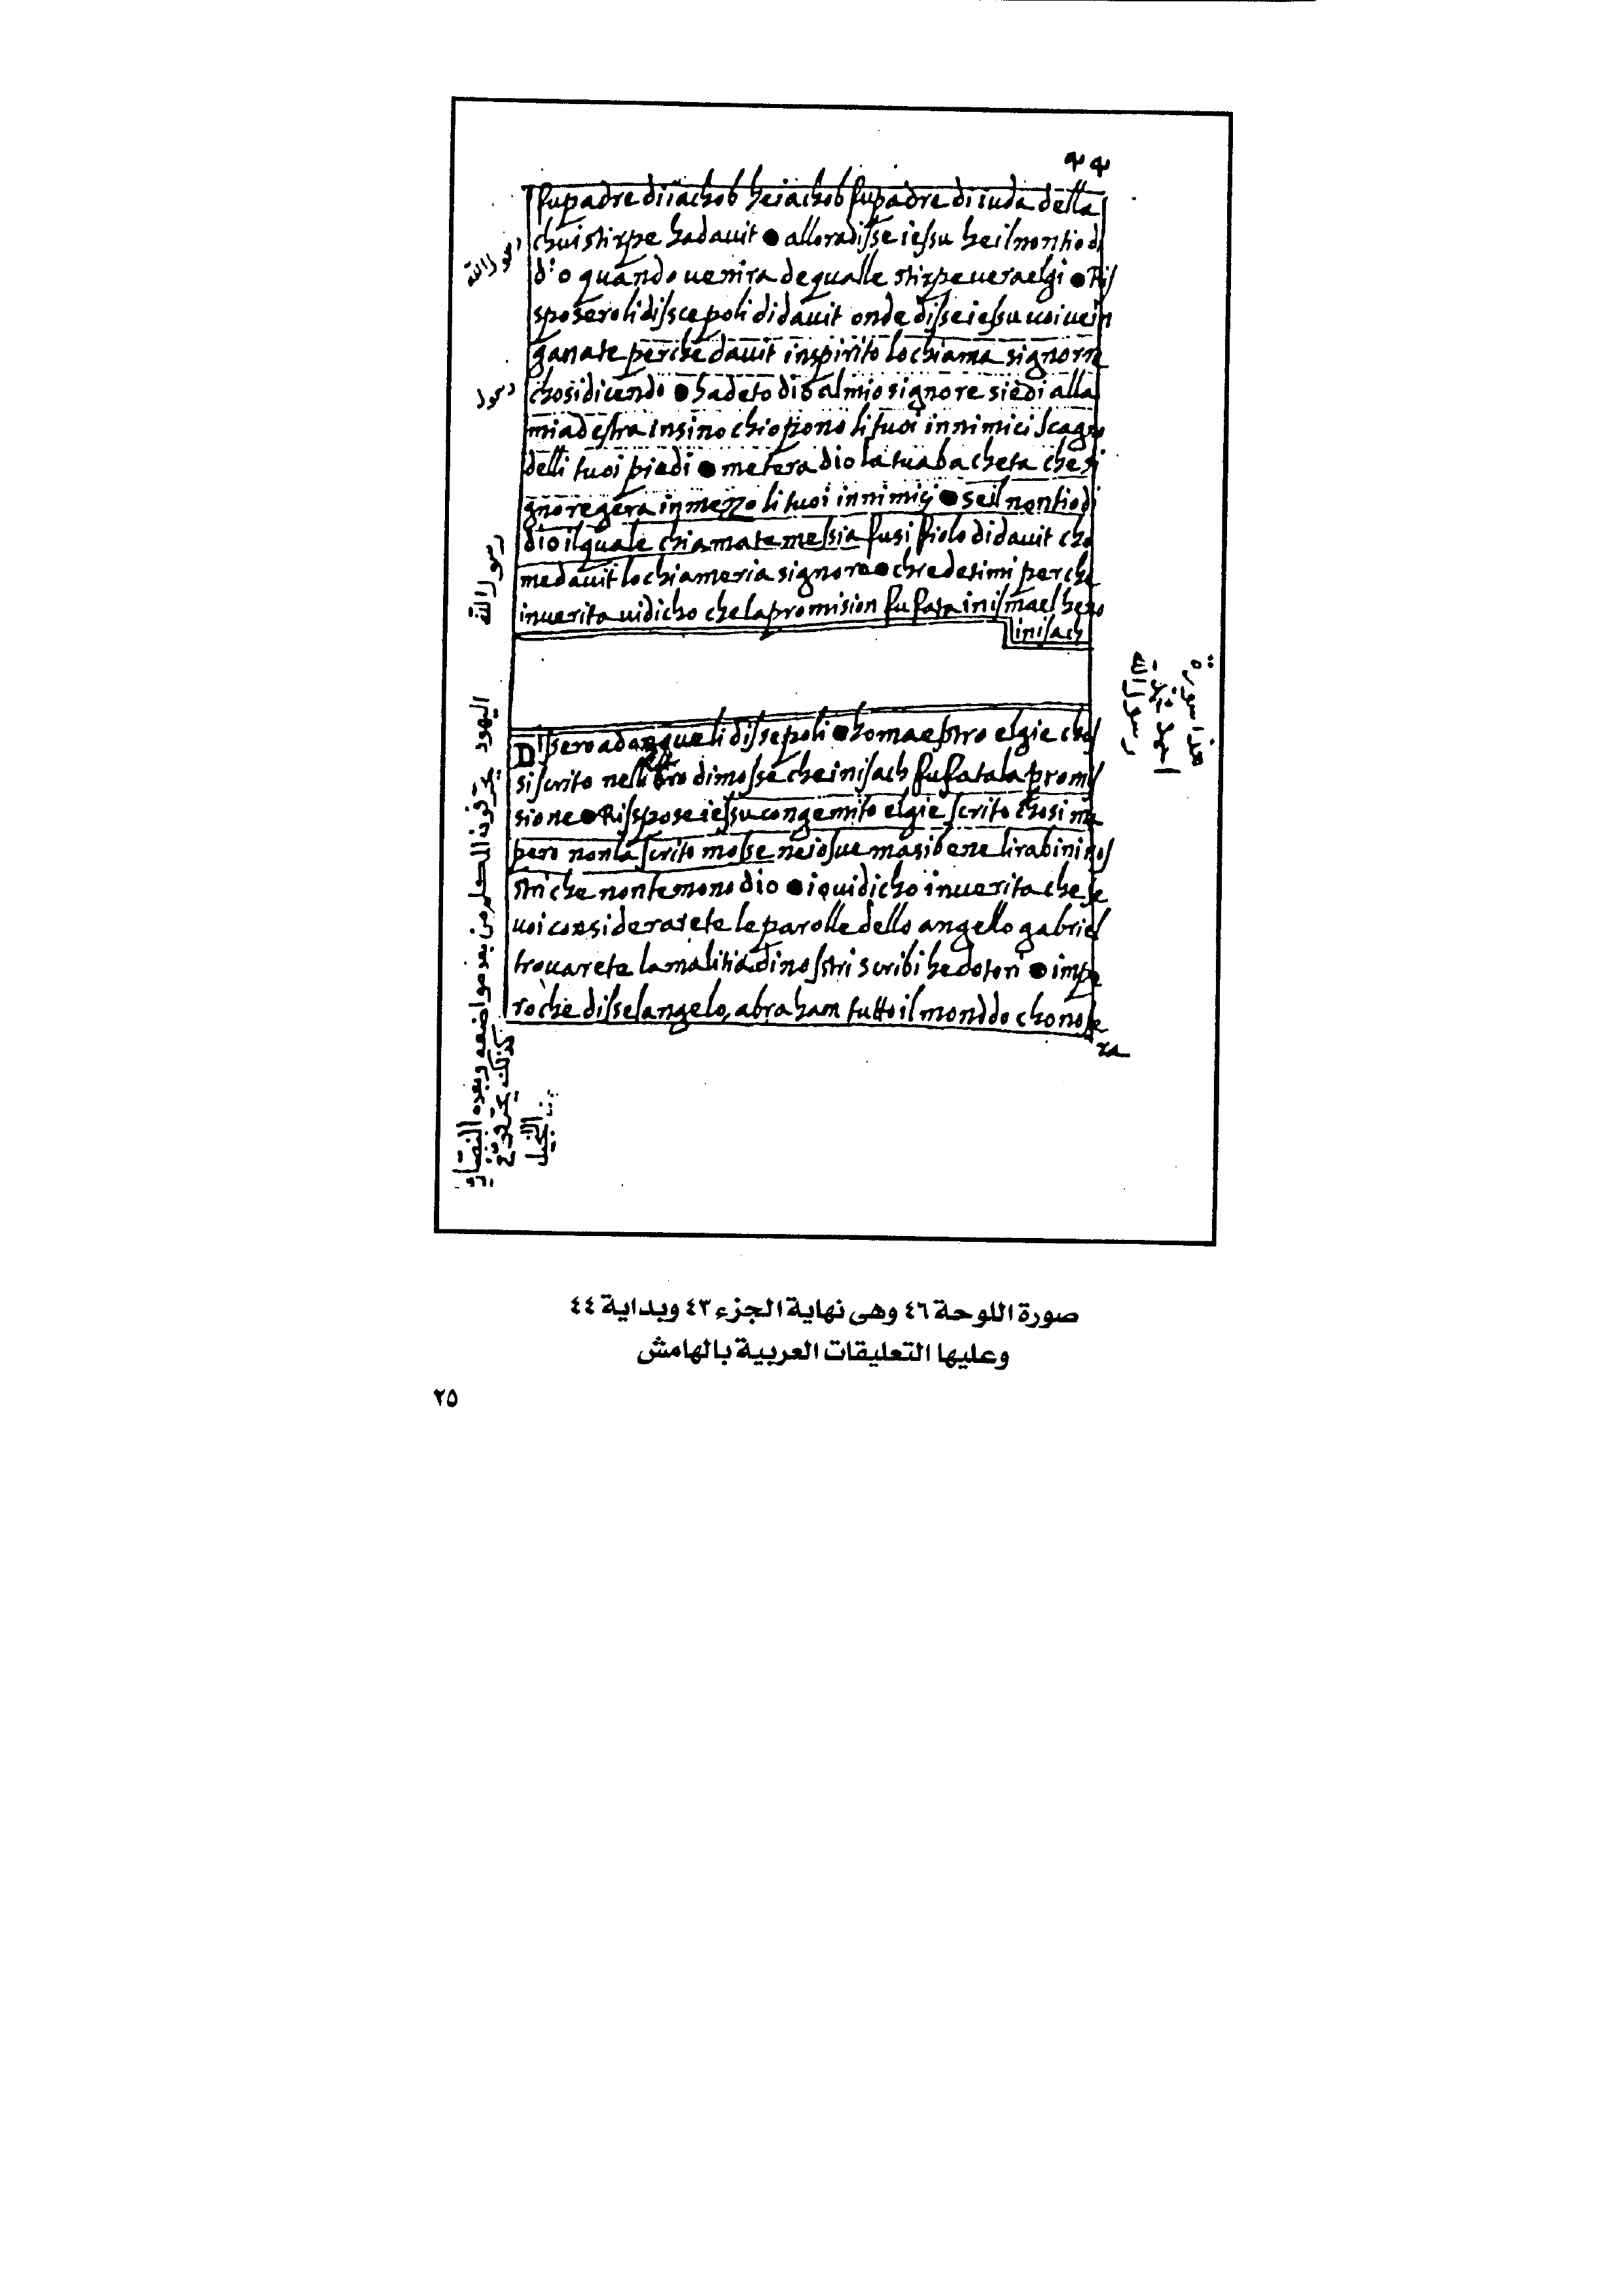 fu padre di iachob he iachob fu padre di iuda della
chui stirpe ha dauit ● allora disse iessu he il nontio di
dio quando uenira de qualle stirpe uera elgi ● Ris
sposero li disscepoli di dauit onde disse iessu uoi ue in
ganate perche dauit in spirito lo chiama signorre
chosi dicendo ● ha deto dio al mio signore siedi alla
mia destra insino chio pono li tuoi innimici scagno
delli tuoi piedi ● metera dio la tua bacheta che si
gnoregera in mezzo li tuoi innimicj ● se il nontio di
dio il quale chiamate messia fusi fiolo di dauit cho
me dauit lo chiameria signore ● chredetimi perche
in uerita ui dicho che la promision fu fata in ismael he no
in isach
رسول الله
رسول
رسول الله
هذا سورة
رسول الله
Dissero adonque li dissepoli ● ho maestro elgie cho
si scrito nel libro di mosse che in isach fu fata la promis
sione ● Risspose iessu con gemito elgie scrito chosi ma
pero non la scrito mosse ne iosue ma si bene li rabini nos
stri che non temono dio ● i qui dicho in uerita che se
uoi considerarete le parolle dello angello gabriel
trouarete la malitia di nosstri scribi he dotori ● impe
ro che disse langelo, abraham tutto il monddo chonose
ra
اليهود يحرفون الكلم من بعد مواضعه وبعده النصارى
كذلك يحرفون
الانجيل
صورة اللوحة ٤٦ وهى نهاية الجزء ٤٣ وبداية ٤٤
وعليها التعليقات العربية بالهامش
٢٥